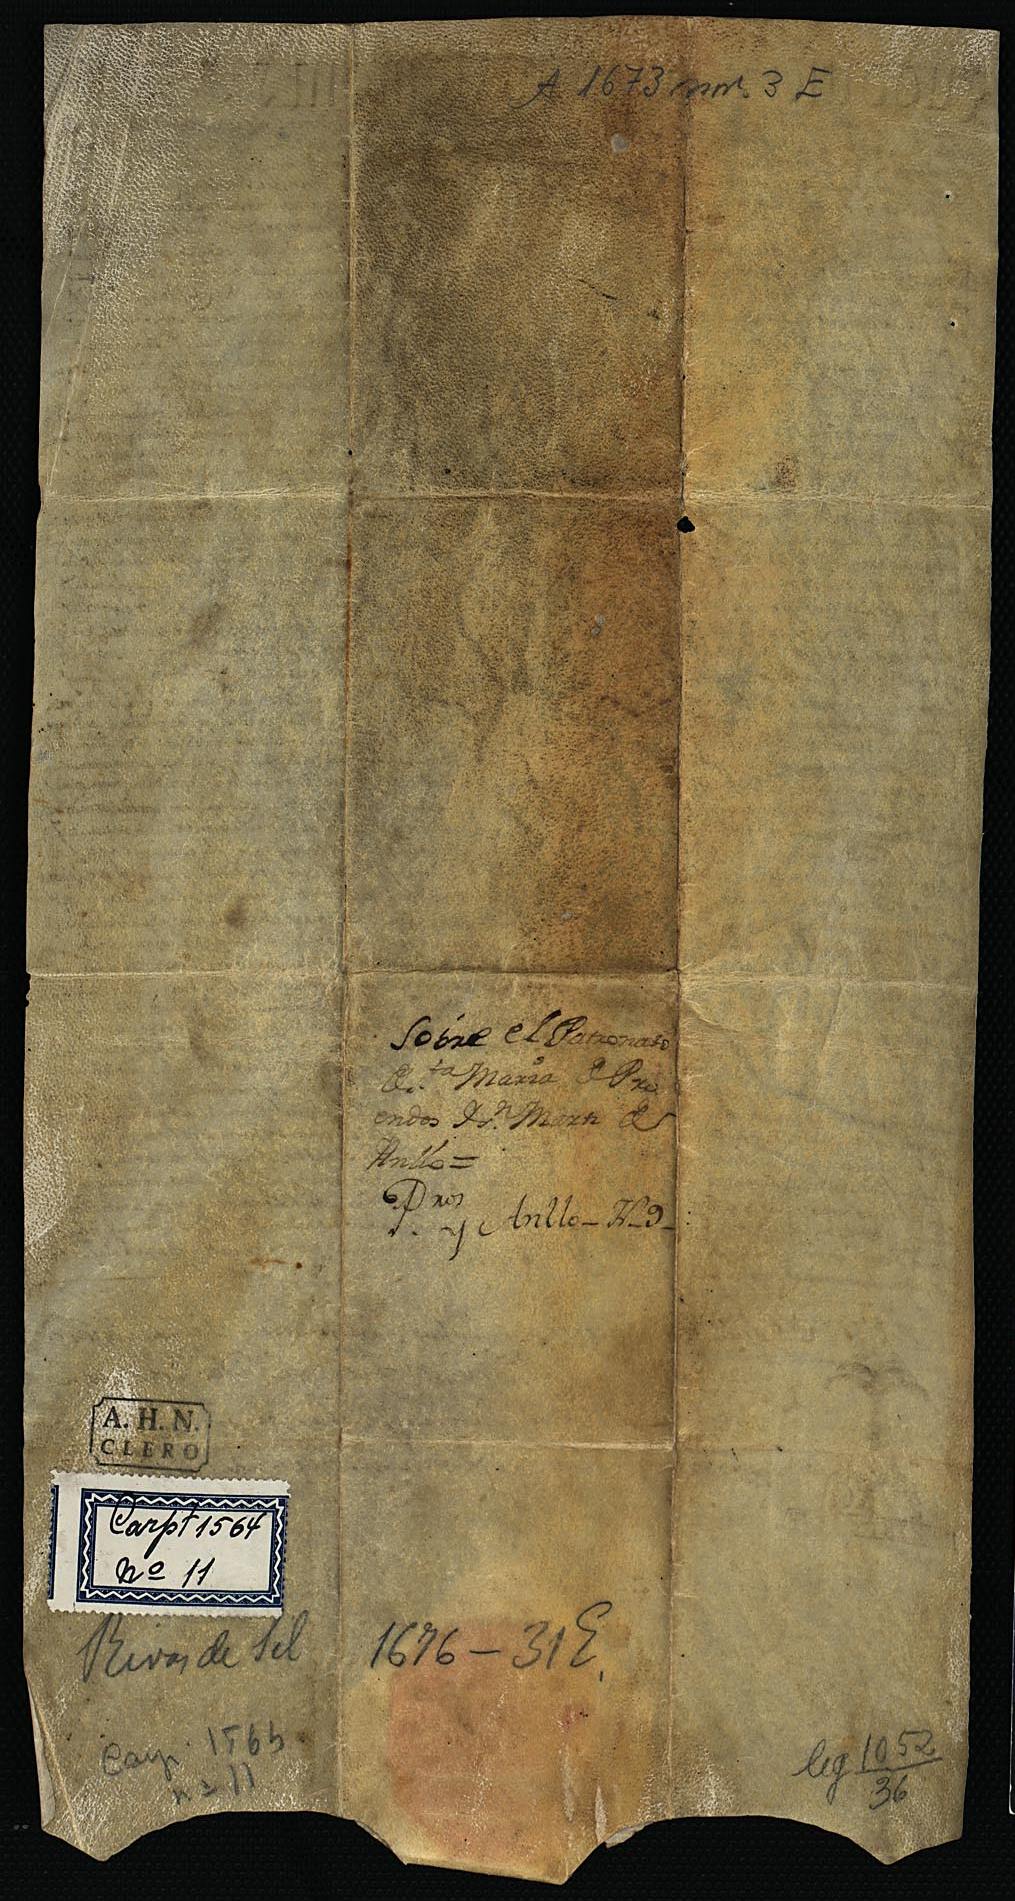 A 1673 3 E
Sobre el Patronato
de S.ta Maria de Pra
endos y S.n Martn de
Anllo=
P.nos y Anllo - N. 9 -
A. H. N.
CLERO
Carpt 1564
nº 11
Rivas de Sil
1676 - 31 E.
Carp. 1565
nº 11
leg 1052
36